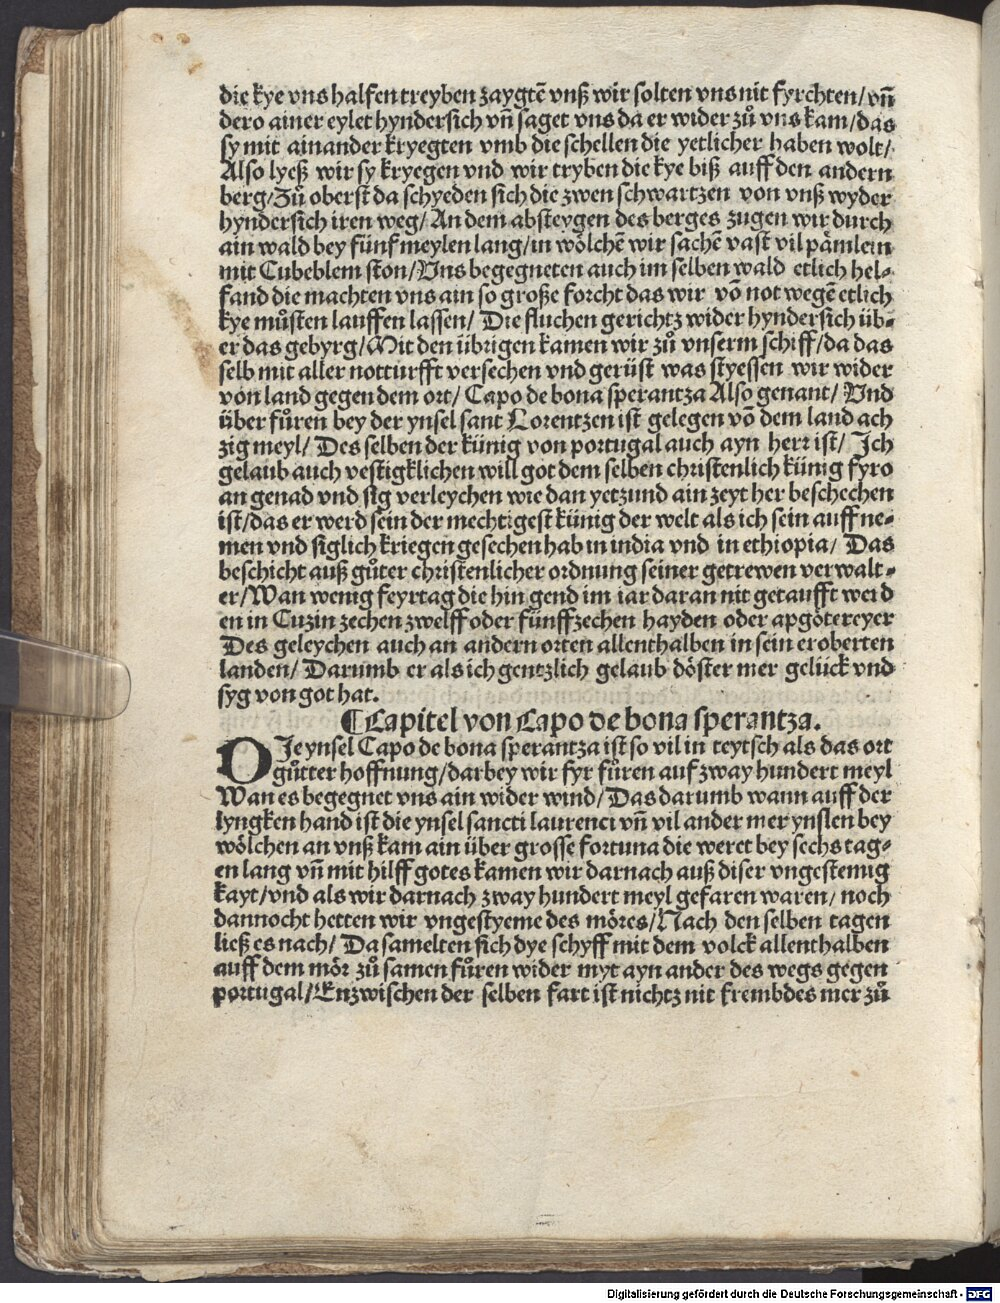 die kye vns halfen treyben zaygtē vnß wir solten vns nit fyrchten/ vn̄
dero ainer eylet hyndersich vn̄ saget vns da er wider zů vns kam/das
sy mit ainander kryegten vmb die schellen die yetlicher haben wolt/
Also lyeß wir sy kryegen vnd wir tryben die kye biß auff den andern
berg/Zů oberst da schyeden sich die zwen schwartzen von vnß wyder
hyndersich iren weg/ An dem absteygen des berges zugen wir durch
ain wald bey fünf meylen lang/in wölchē wir sachē vast vil pämlein
mit Cubeblem ston/Vns begegneten auch im selben wald etlich hel-
fand die machten vns ain so große forcht das wir vō not wegē etlich
kye můsten lauffen lassen/ Die fluchen gerichtz wider hyndersich üb-
er das gebyrg/Mit den übrigen kamen wir zů vnserm schiff/da das
selb mit aller notturfft versechen vnd gerüst was styessen wir wider
von land gegen dem ort/ Capo de bona sperantza Also genant/ Vnd
über fůren bey der ynsel sant Lorentzen ist gelegen vō dem land ach
zig meyl/ Des selben der künig von portugal auch ayn herr ist/ Ich
gelaub auch vestigklichen will got dem selben christenlich künig fyro
an genad vnd sig verleychen wie dan yetzund ain zeyt her beschechen
ist/das er werd sein der mechtigest künig der welt als ich sein auff ne-
men vnd siglich kriegen gesechen hab in india vnd in ethiopia/ Das
beschicht auß gůter christenlicher ordnung seiner getrewen verwalt-
er/Wan wenig feyrtag die hin gend im iar daran nit getaufft werd
en in Cuzin zechen zwelff oder fünffzechen hayden oder apgötereyer
Des geleychen auch an andern orten allenthalben in sein eroberten
landen/ Darumb er als ich gentzlich gelaub döster mer gelück vnd
syg von got hat.
¶Capitel von Capo de bona sperantza.
DJe ynsel Capo de bona sperantza ist so vil in teytsch als das ort
gůtter hoffnung/darbey wir fyr fůren auf zway hundert meyl
Wan es begegnet vns ain wider wind/Das darumb wann auff der
lyngken hand ist die ynsel sancti laurenci vn̄ vil ander mer ynslen bey
wölchen an vnß kam ain über grosse fortuna die weret bey sechs tag-
en lang vn̄ mit hilff gotes kamen wir darnach auß diser vngestemig
kayt/vnd als wir darnach zway hundert meyl gefaren waren/ noch
dannocht hetten wir vngestyeme des möres/Nach den selben tagen
ließ es nach/ Da samelten sich dye schyff mit dem volck allenthalben
auff dem mör zů samen fůren wider myt ayn ander des wegs gegen
portugal/Enzwischen der selben fart ist nichtz nit frembdes mer zů
Digitalisierung gefördert durch die Deutsche Forschungsgemeinschaft - DFG